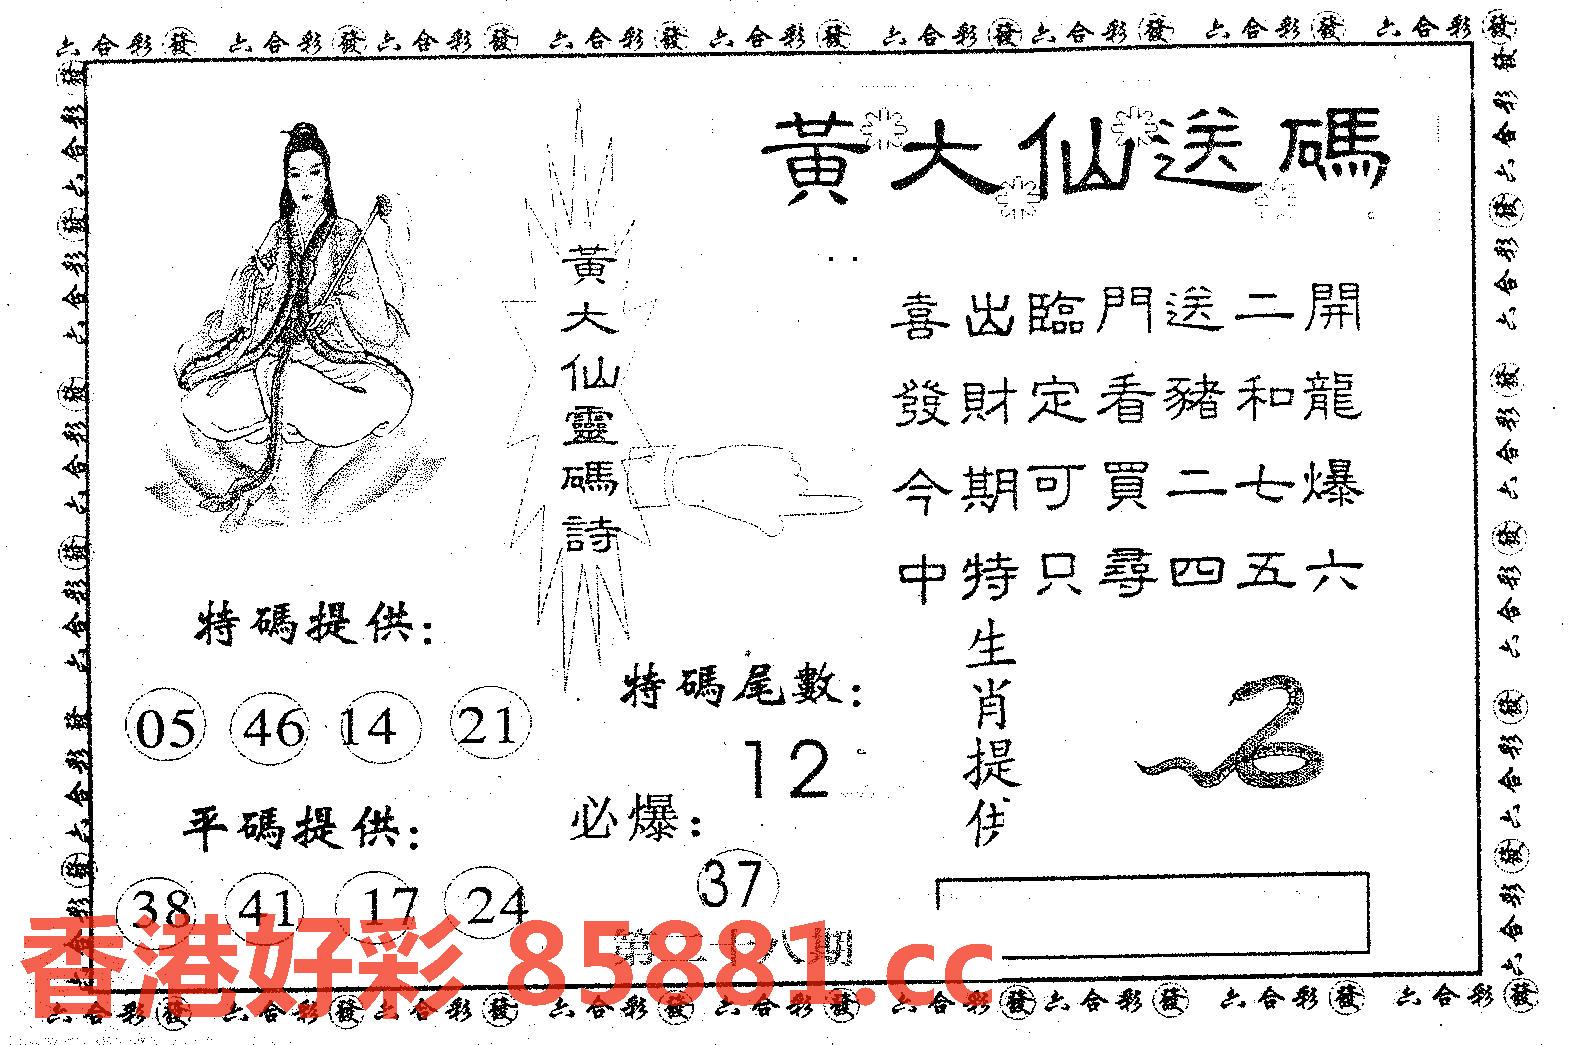 六合彩發 六合彩發六合彩發 六合彩發 六合彩發 六合彩發六合彩發 六合彩發 六合彩發
黃大仙送碼
黃大仙靈碼詩
喜出臨門送二開
發財定看豬和龍
今期可買二七爆
中特只尋四五六
特碼提供：
05 46 14 21
特碼尾數：
12
生肖提供
平碼提供：
38 41 17 24
必爆：
37
第二十八期
香港好彩 85881.cc
六合彩發 六合彩發六合彩發 六合彩發 六合彩發 六合彩發六合彩發 六合彩發 六合彩發